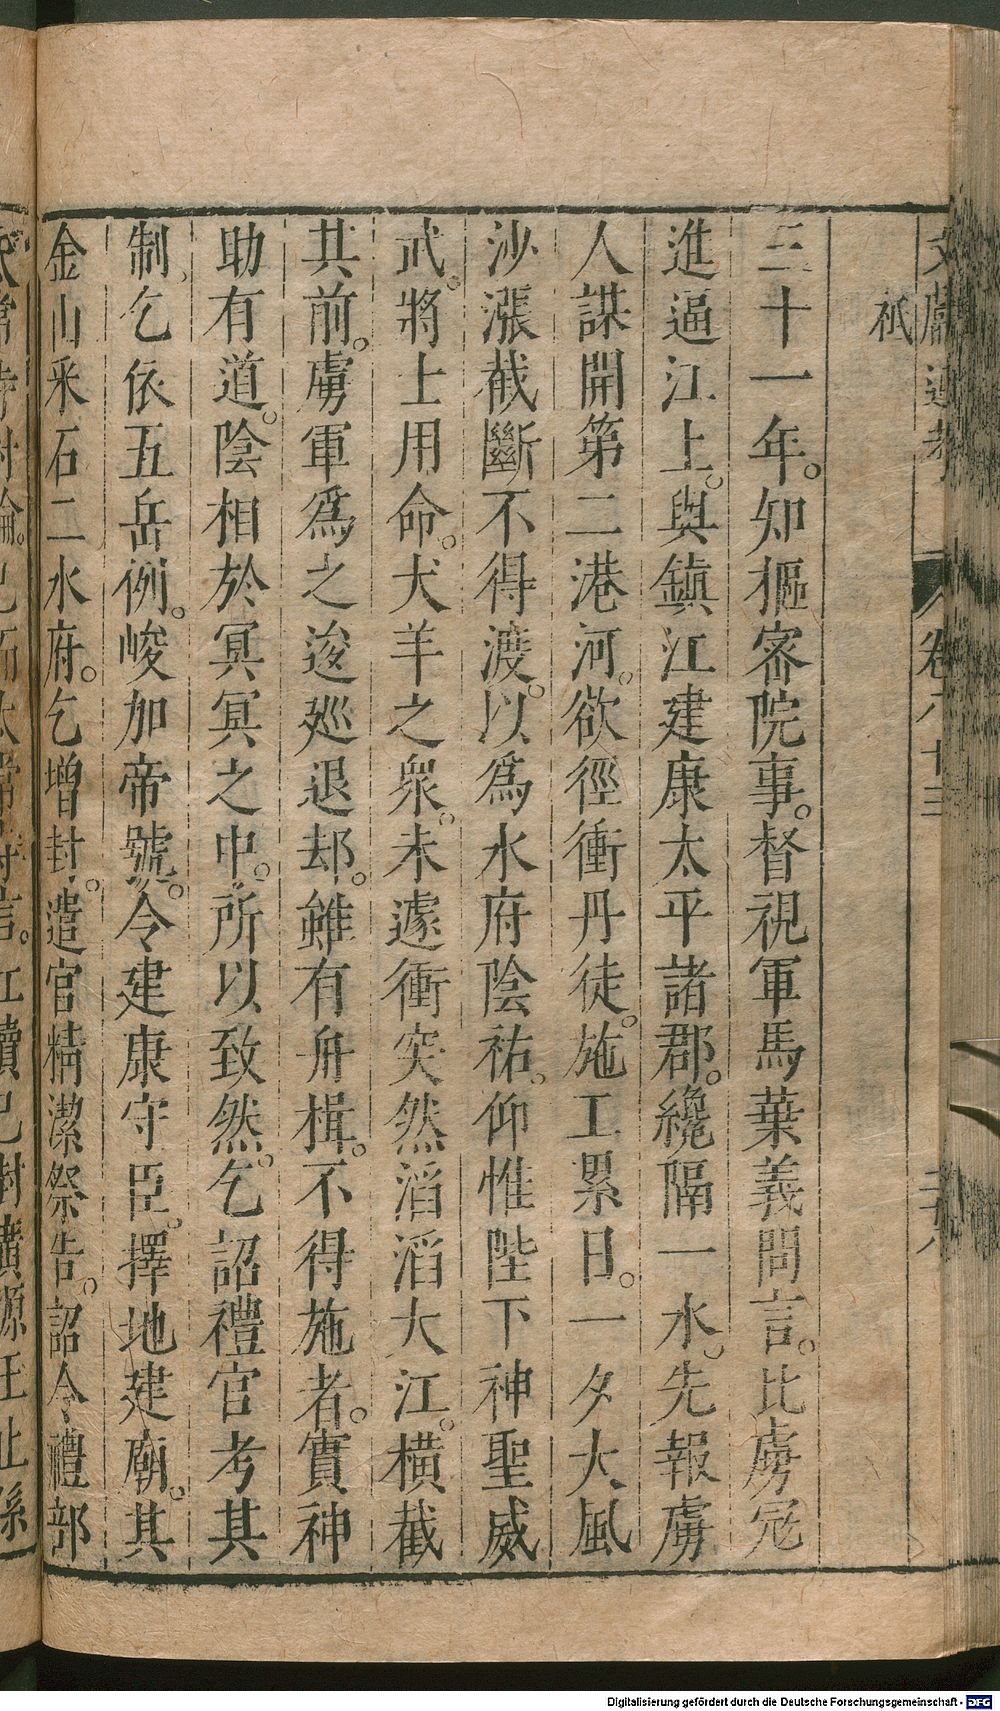 文獻通考 卷八十三
祇
三十一年。知樞密院事。督視軍馬葉義問言。比虜冦
進逼江上。與鎮江建康太平諸郡。纔隔一水。先報虜
人謀開第二港河。欲徑衝丹徒。施工累日。一夕大風
沙漲截斷不得渡。以爲水府陰祐。仰惟陛下神聖威
武。將士用命。犬羊之衆。未遽衝突然滔滔大江。橫截
其前。虜軍爲之逡廵退却。雖有舟楫。不得施者。實神
助有道。陰相於冥冥之中。所以致然。乞詔禮官考其
制、乞依五岳例。峻加帝號。令建康守臣。擇地建廟。其
金山采石二水府。乞增封。遣官精潔祭告。詔令禮部
Digitalisierung gefördert durch die Deutsche Forschungsgemeinschaft - DFG